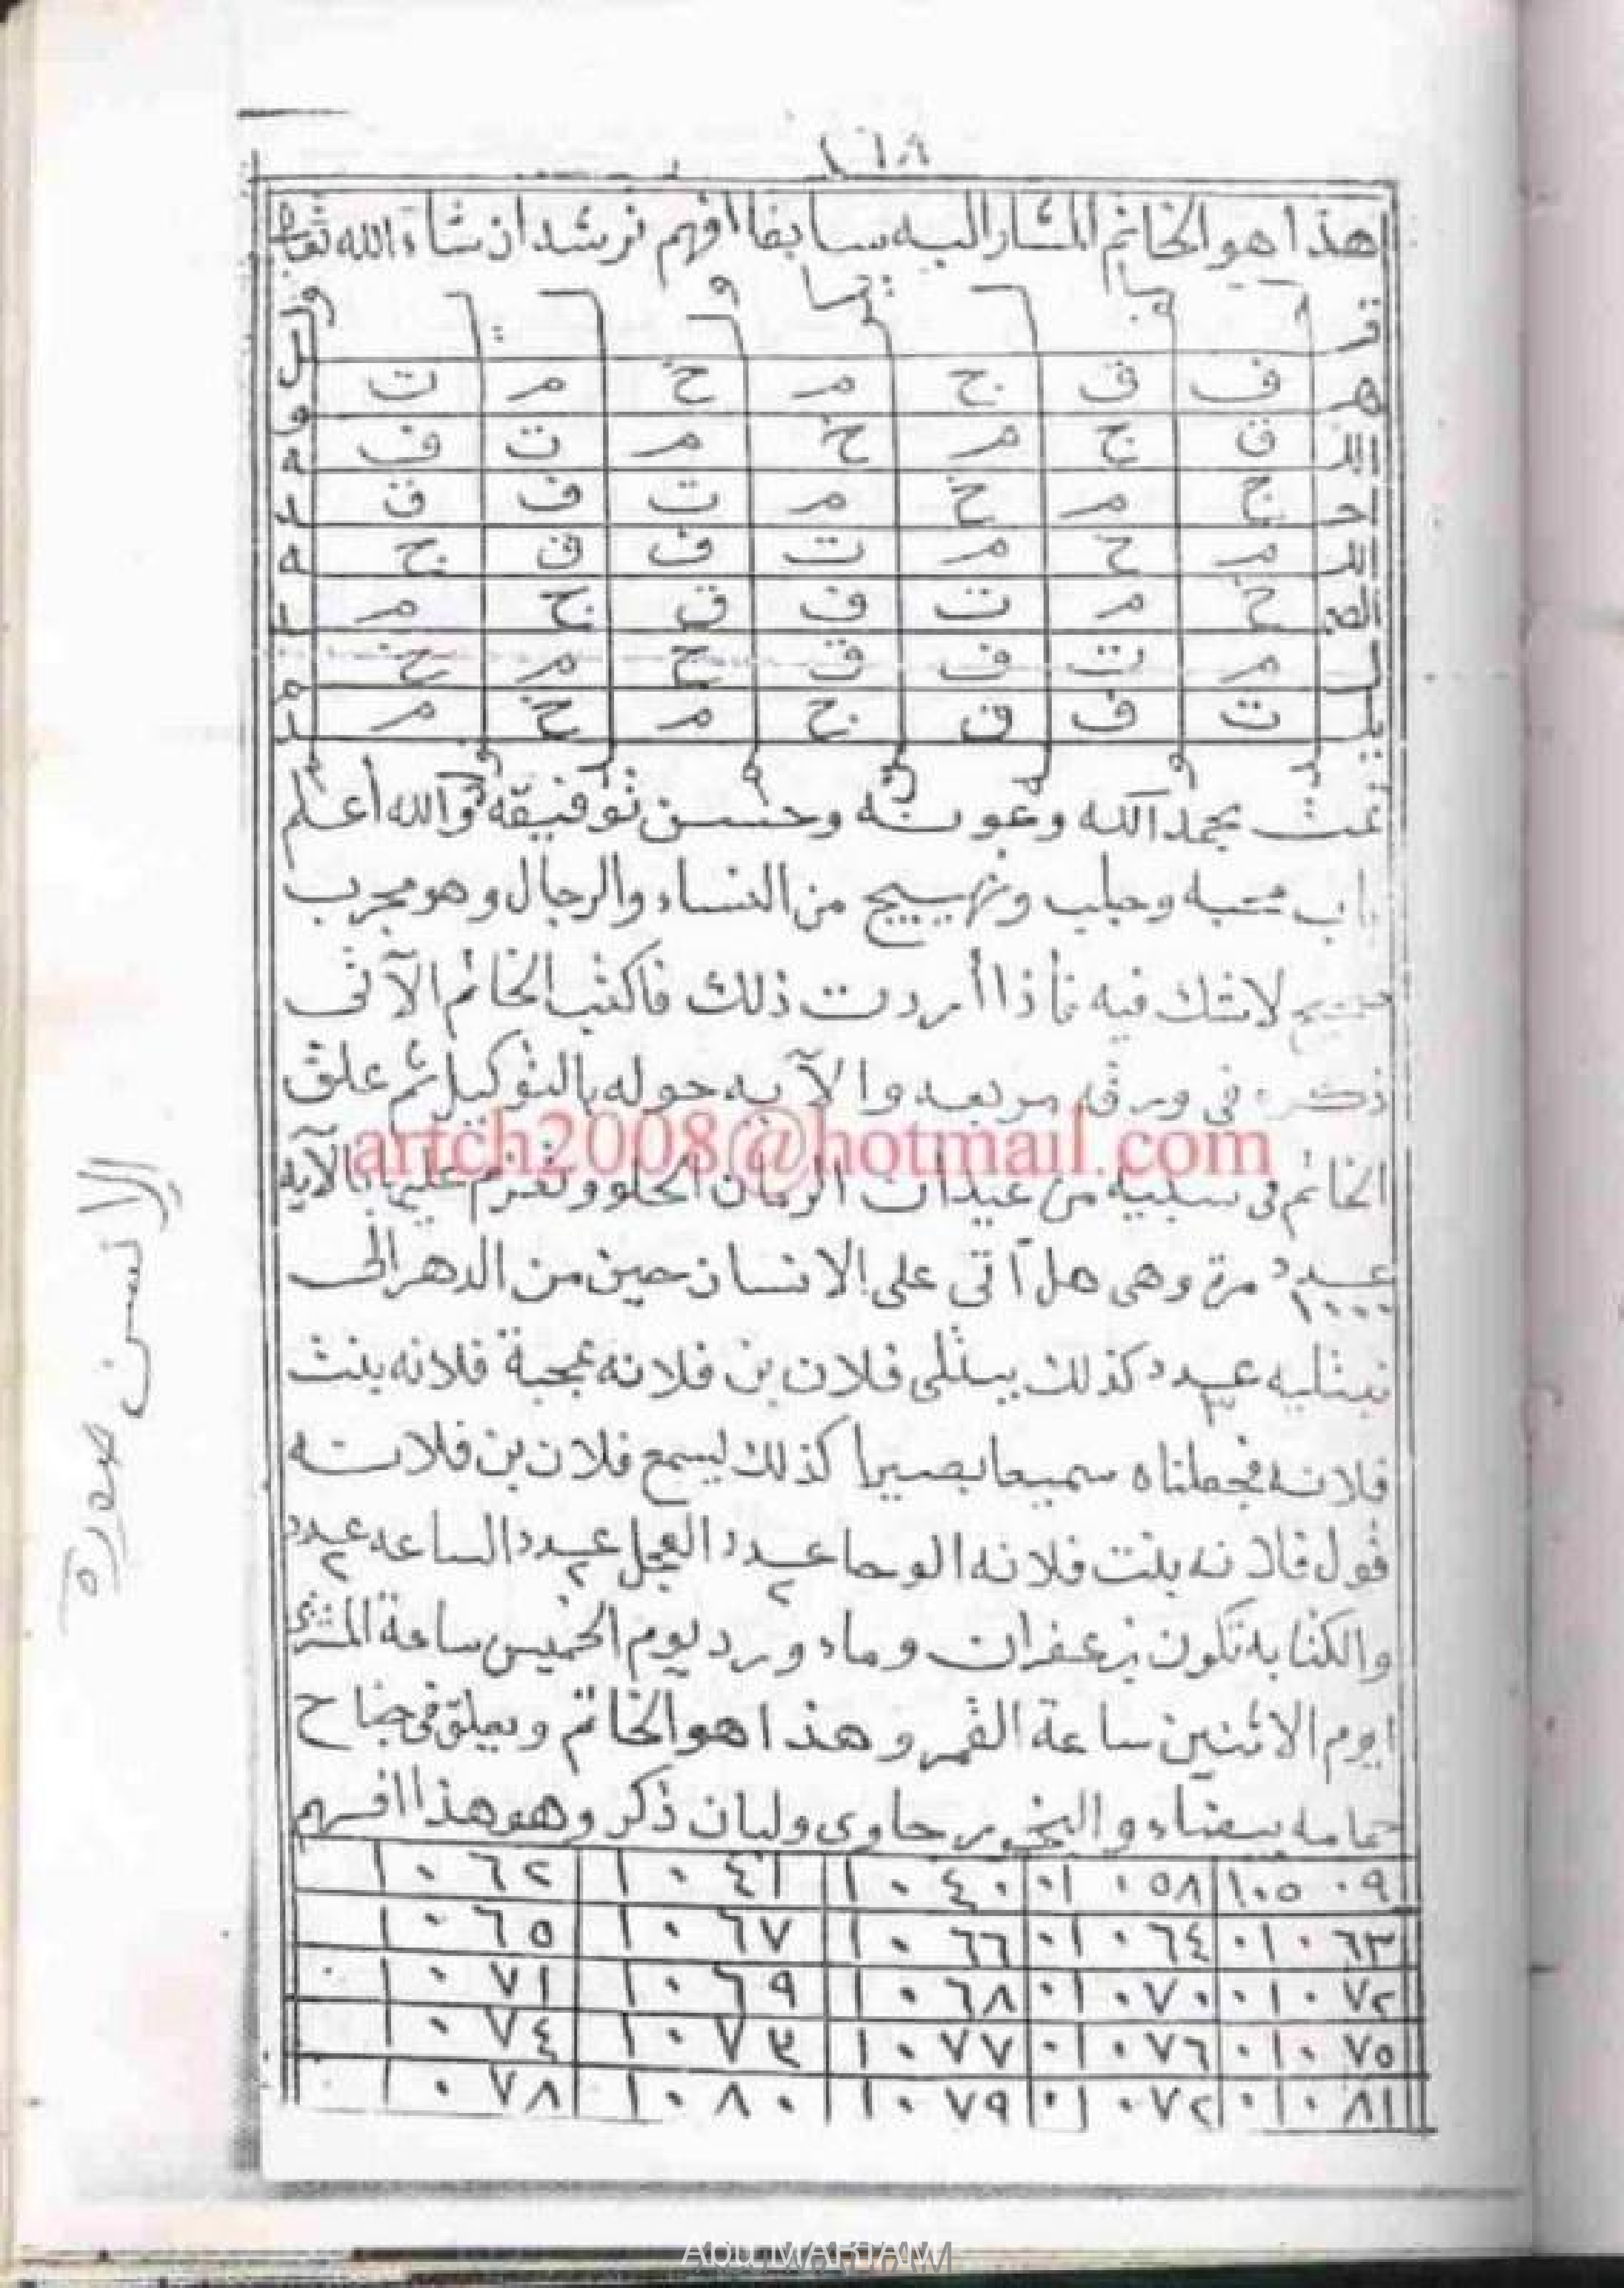 ١٠٨
هذا هو الخاتم المشار اليه سابقا افهم ترشد ان شاء الله تعالى
ف ق ج م خ م ت
ق ج م خ م ت ف
ج م خ م ت ف ق
م خ م ت ف ق ج
خ م ت ف ق ج م
م ت ف ق ج م خ
ت ف ق ج م خ م
تمت بحمد الله وعونه وحسن توفيقه والله أعلم
باب محبه وجلب وتهييج من النساء والرجال وهو مجرب
صحيح لاشك فيه فاذا أردت ذلك فاكتب الخاتم الآتى
ذكره فى ورقه مربعه والآيه حوله بالتوكيل ثم علق
الخاتم فى سبيبه من عيدان الرمان الحلو وتعزم عليها بالآيه
عدد ١٠٠٠ مرة وهى هل آتى على الانسان حين من الدهر الى
نبتليه عدد ٣ كذلك يبتلى فلان بن فلانه بمحبة فلانه بنت
فلانه فجعلناه سميعا بصيرا كذلك ليسمع فلان بن فلانه
قول فلانه بنت فلانه الوحا عدد ٢ العجل عدد ٢ الساعه عدد ٢
والكتابه تكون بزعفران وماء ورد يوم الخميس ساعة المشترى
ايوم الاثنين ساعة القمر وهذا هو الخاتم ويعلق فى جناح
حمامه بيضاء والبخور جاوى ولبان ذكر وهو هذا افهم
١٠٥٠٩ ١٠٥٨ ١٠٤٠ ١٠٤١ ١٠٦٢
١٠٦٣ ١٠٦٤ ١٠٦٦ ١٠٦٧ ١٠٦٥
١٠٧٢ ١٠٧٠ ١٠٦٨ ١٠٦٩ ١٠٧١
١٠٧٥ ١٠٧٦ ١٠٧٧ ١٠٧٣ ١٠٧٤
١٠٨١ ١٠٧٢ ١٠٧٩ ١٠٨٠ ١٠٧٨
artch2008@hotmail.com
Abu MARIAM